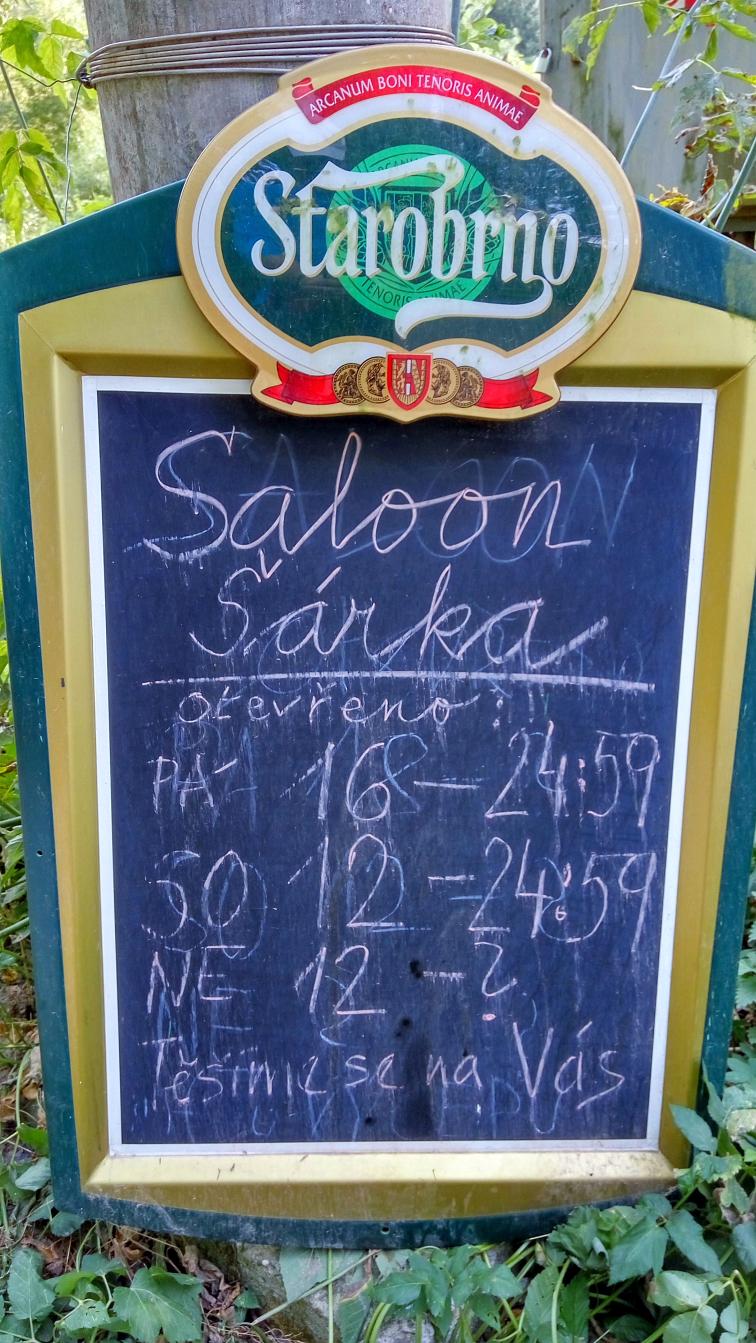 ARCANUM BONI TENORIS ANIMAE
Starobrno
TENORIS ANIMAE
Saloon
Šárka
otevřeno:
PÁ 16 – 24:59
SO 12 – 24:59
NE 12 – ?
Těšíme se na Vás